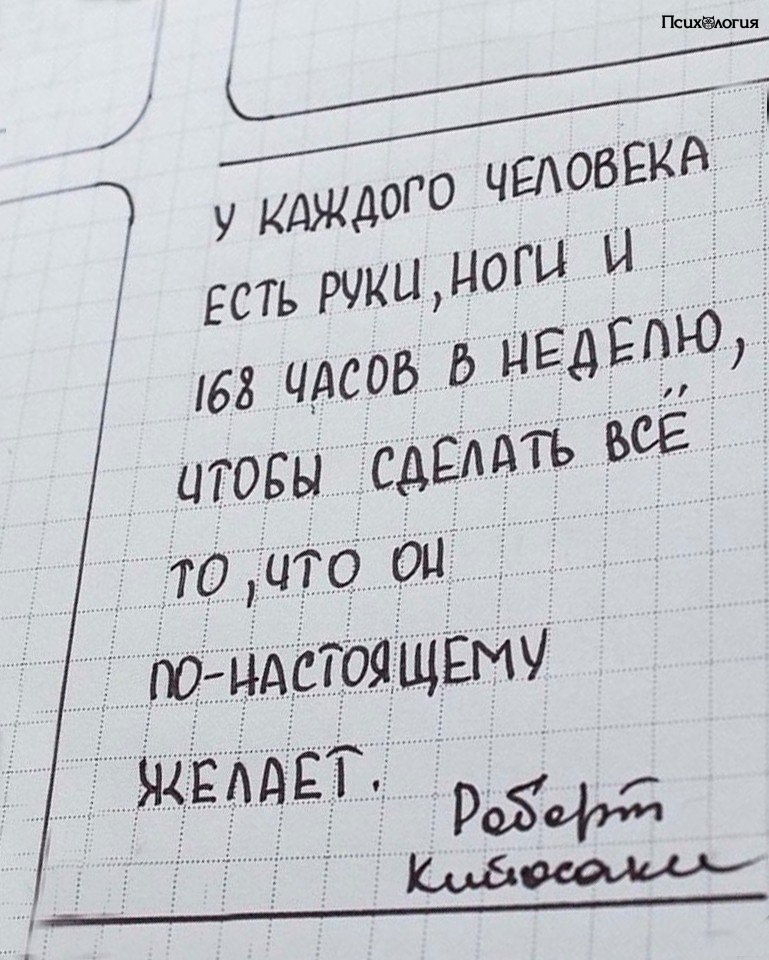 Психология
У КАЖДОГО ЧЕЛОВЕКА
ЕСТЬ РУКИ, НОГИ И
168 ЧАСОВ В НЕДЕЛЮ,
ЧТОБЫ СДЕЛАТЬ ВСЁ
ТО, ЧТО ОН
ПО-НАСТОЯЩЕМУ
ЖЕЛАЕТ.
Роберт
Кийосаки